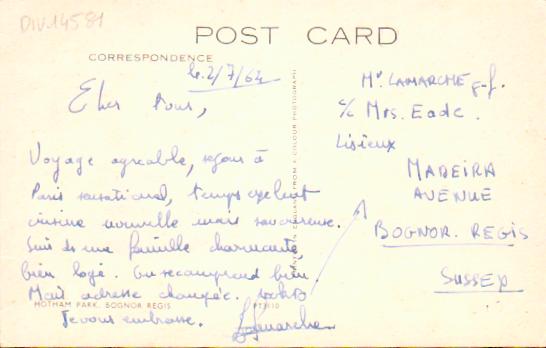 DIV.14581
POST CARD
CORRESPONDENCE
le 2/7/64
Cher tous,
Voyage agréable, séjour à
Paris sensationel, temps exelent
cuisine nouvelle mais savoureuse.
Suis ds une famille charmante,
bien logé. On se comprend bien
Mais adresse changée.
HOTHAM PARK, BOGNOR REGIS
PT2110
Je vous embrasse.
JLamarche
Mr LAMARCHE J-J.
c/o Mrs. Eade.
Lisieux
MADEIRA
AVENUE
BOGNOR. REGIS
SUSSEX
FROM A COLOUR PHOTOGRAPH